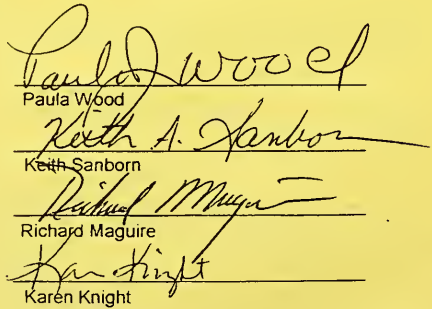 Paula J Wood
Paula Wood
Keith A. Sanborn
Keith Sanborn
Richard Maguire
Richard Maguire
Karen Knight
Karen Knight